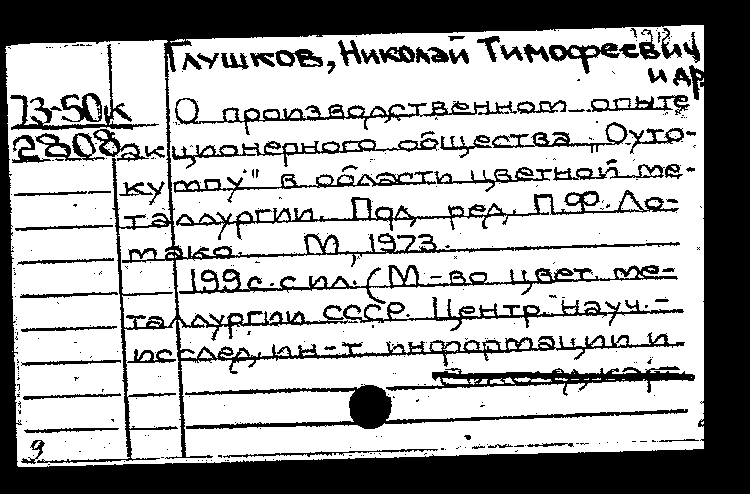 Глушков, Николай Тимофеевич
и др
73-50к
О производственном опыте
2808
акционерного общества „Оуто-
кумпу" в области цветной ме-
таллургии. Под ред. П.Ф. Ло-
мако. М, 1973.
199с. с ил. (М-во цвет. ме-
таллургии СССР. Центр. науч.-
исслед, ин-т информации и
9